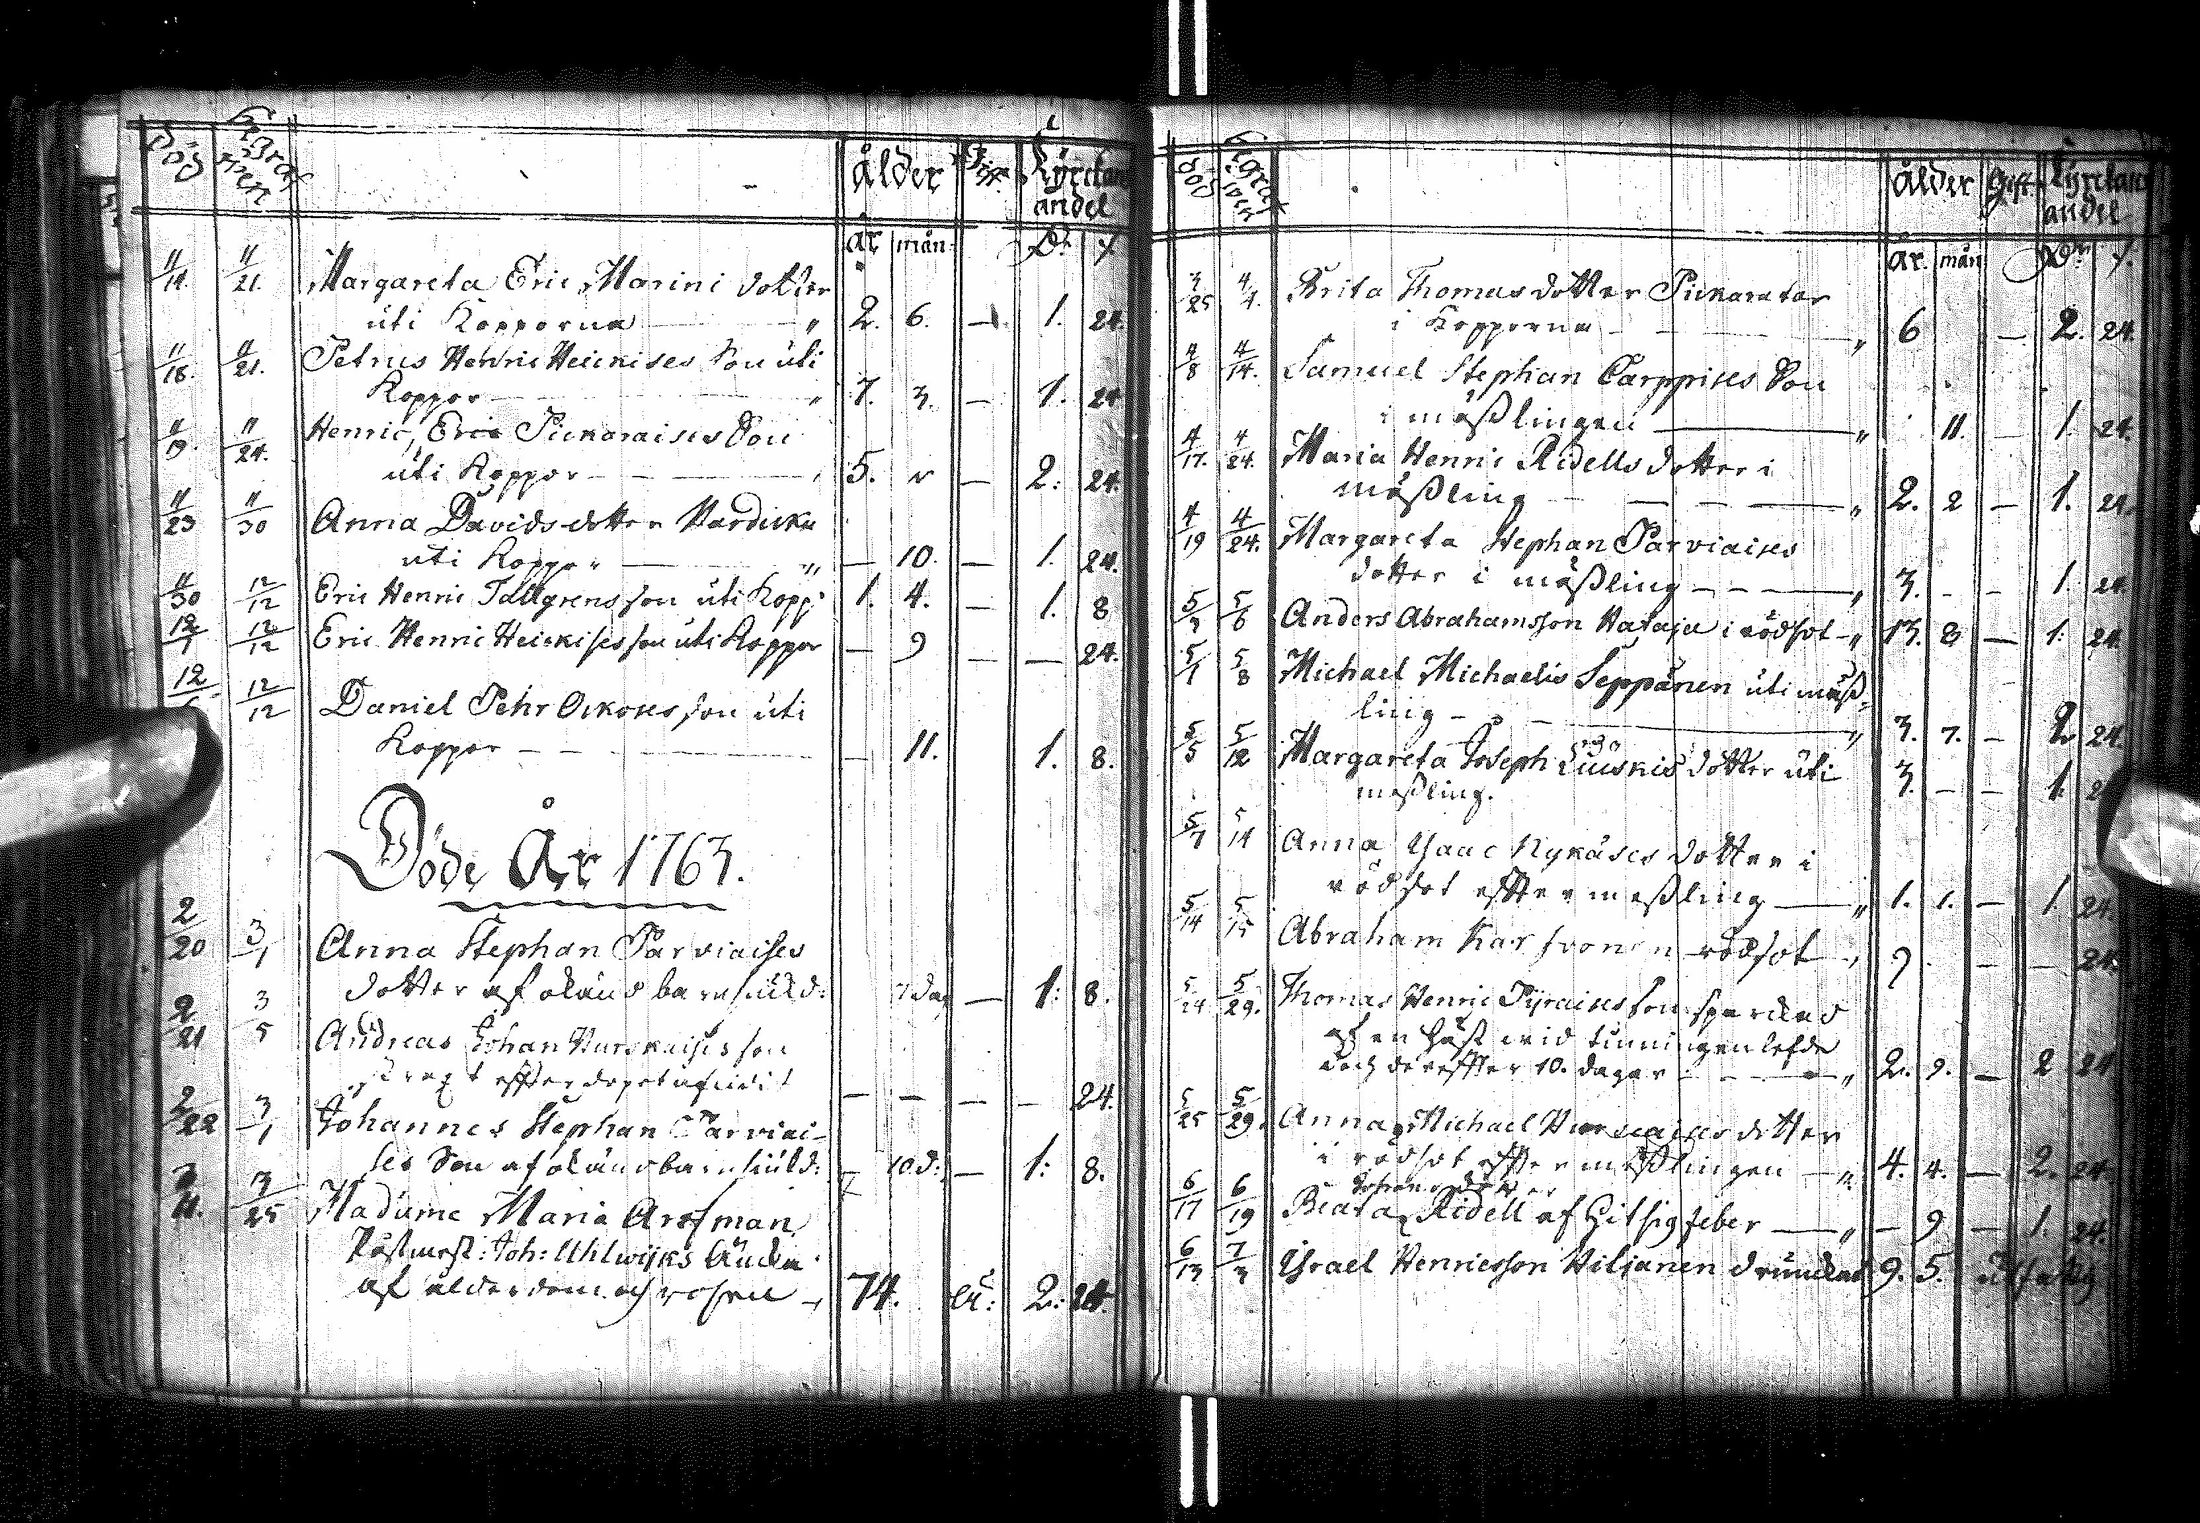 död begrafven Ålder Gift Kyrckans andel
år mån Dr
11/14. 11/21. Margareta Eric Marini dotter
uti Kopporna 2. 6. — 1. 24.
11/18. 11/21. Petrus Henric Heickises Son uti
Koppor 7. 3. — 1. 24
11/19. 11/24. Henric, Eric Pickaraises Son
uti Koppor 5. — 2. 24.
11/23 11/30 Anna Davids dotter Vardicka
uti Koppor — 10. — 1. 24.
11/30 12/12 Eric Henric Tallgrens son uti Kopp: 1. 4. — 1. 8
12/1 12/12 Eric Henric Heickises son uti Koppor — 9 — — 24.
12/ 12/12 Daniel Pehr Ockoses son uti
Koppor — — 11. 1. 8.
Döde År 1763.
2/20 3/1 Anna Stephan Parviaises
dotter af okänd barnsiukd: 7 dag — 1: 8.
2/21 3/5 Andreas Johan Purskaises son
strax t effter dopet — — — — 24.
2/22 3/1 Johannes Stephan Parviai-
ses Son af okänd barnsiukd: — 10 d: — 1: 8.
3/11. 3/25 Madame Maria Arosman
Postmest: Joh: Uhlwijks Änka
af ålderdom och rosen 74. ä: 2: 24.
död begrafven Ålder Gift Kyrckans andel
år. mån Dr
3/25 4/4. Brita Thomas dotter Pickaratar
i Kopporna 6 — 2. 24.
4/8 4/14. Samuel Stephan Carppises Son
i mäßlingen 11. — 1. 24.
4/17. 4/24. Maria Henric Ridells dotter i
mäßling 2. 2 — 1. 24.
4/19 4/24. Margareta Stephan Parviaises
dotter i mäßling 3. - - 1. 24.
5/3 5/8 Anders Abrahamsson Hataja i rödsot 13. 8 — 1: 24.
5/1 5/8 Michael Michaelis Seppänen uti mäß-
ling 3. 7. — 2. 24.
5/5 5/12 Margareta Joseph Liuskis dotter uti
meßling. 3. — — 1.
5/7 5/14 Anna Isaac Nykäses dotter i
rödsot effter meßling 1. 1. — 1. 24.
5/14 5/15 Abraham Karhvonen rödsot 9 — — 24.
5/24 5/29. Thomas Henric Pyraises son sparckad
af en häst wid tunningen lefde
doch dereffter 10. dagar 2. 9. — 2 24
5/25 5/29. Anna Michael Purscaises dotter
i rödsot effter mäßlingen 4. 4. — 2. 24.
Johans dotter
6/17 6/19 Beata Ridell af Hitsig feber — 9 — 1. 24.
6/13 7/3 Israel Henricsson Hiljanen drunknad 9. 5. utfattig